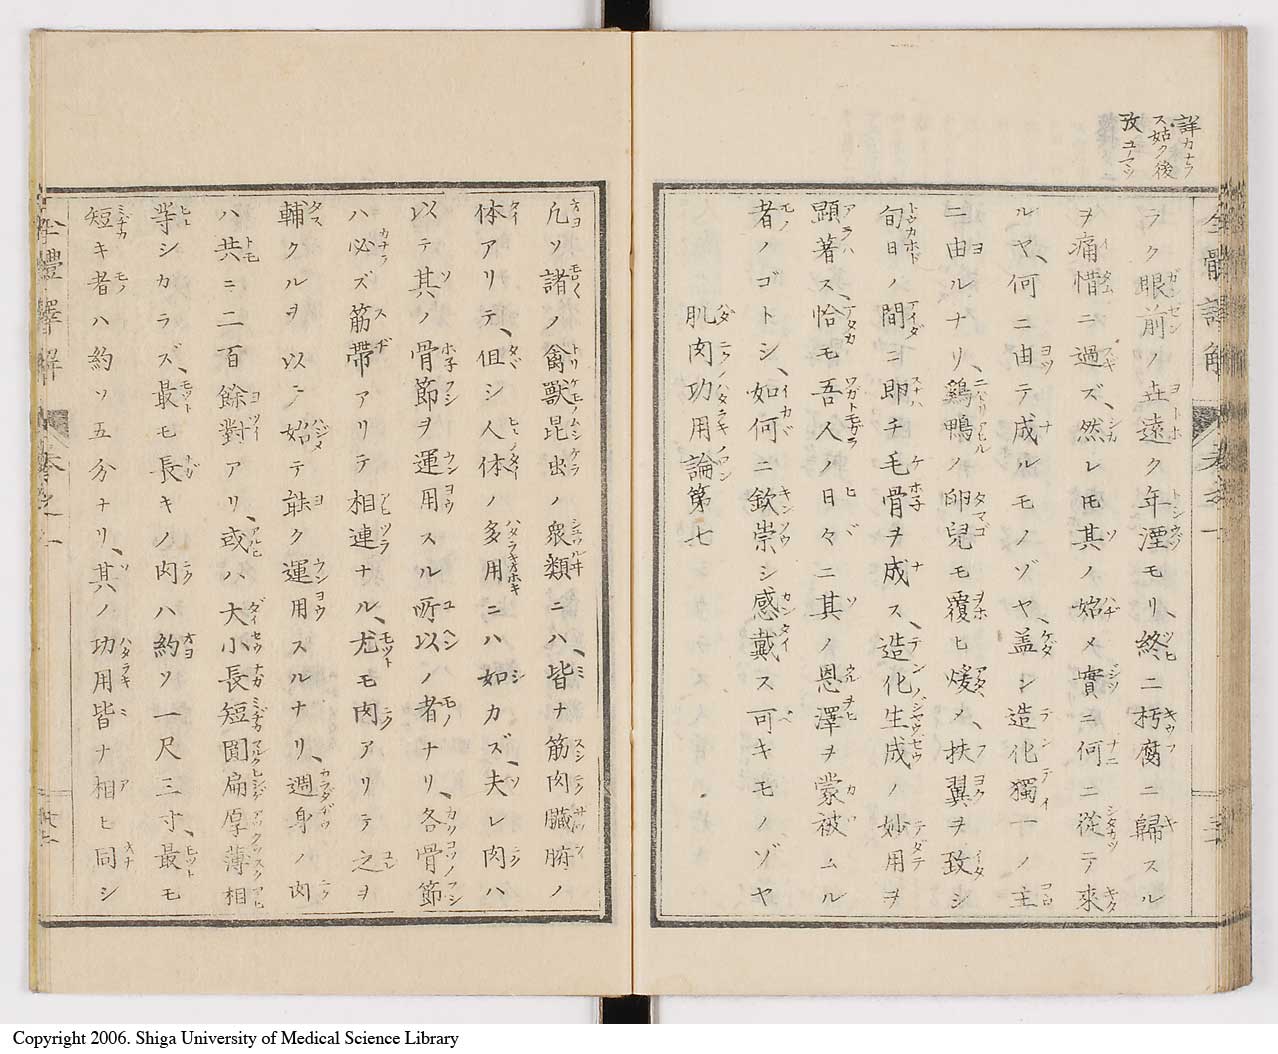 詳カナラ
ス姑ク後
攷ユーマツ
ラク眼前ノ壵遠ク年湮モリ、終ニ朽腐ニ歸スル
ヲ痛惜ニ過ズ、然レ𪜈其ノ始メ實ニ何ニ從テ來
ルヤ、何ニ由テ成ルモノゾヤ、盖シ造化獨一ノ主
ニ由ルナリ、鷄鴨ノ卵兒モ覆ヒ煖メ、扶翼ヲ致シ
旬日ノ間ニ即チ毛骨ヲ成ス、造化生成ノ妙用ヲ
顕著ス、恰モ吾人ノ日々ニ其ノ恩澤ヲ蒙被ムル
者ノゴトシ、如何ニ欽崇シ感戴ス可キモノゾヤ
肌肉功用論第七
凡ソ諸ノ禽獣昆虫ノ衆類ニハ、皆ナ筋肉臓腑ノ
体アリテ、但シ人体ノ多用ニハ如カズ、夫レ肉ハ
以テ其ノ骨節ヲ運用スル所以ノ者ナリ、各骨節
ハ必ズ筋帶アリテ相連ナル、尤モ肉アリテ之ヲ
輔クルヲ以テ始テ能ク運用スルナリ、週身ノ肉
ハ共ニ二百餘對アリ、或ハ大小長短圓扁厚薄相
等シカラズ、最モ長キノ肉ハ約ソ一尺三寸、最モ
短キ者ハ約ソ五分ナリ、其ノ功用皆ナ相ヒ同シ
Copyright 2006. Shiga University of Medical Science Library